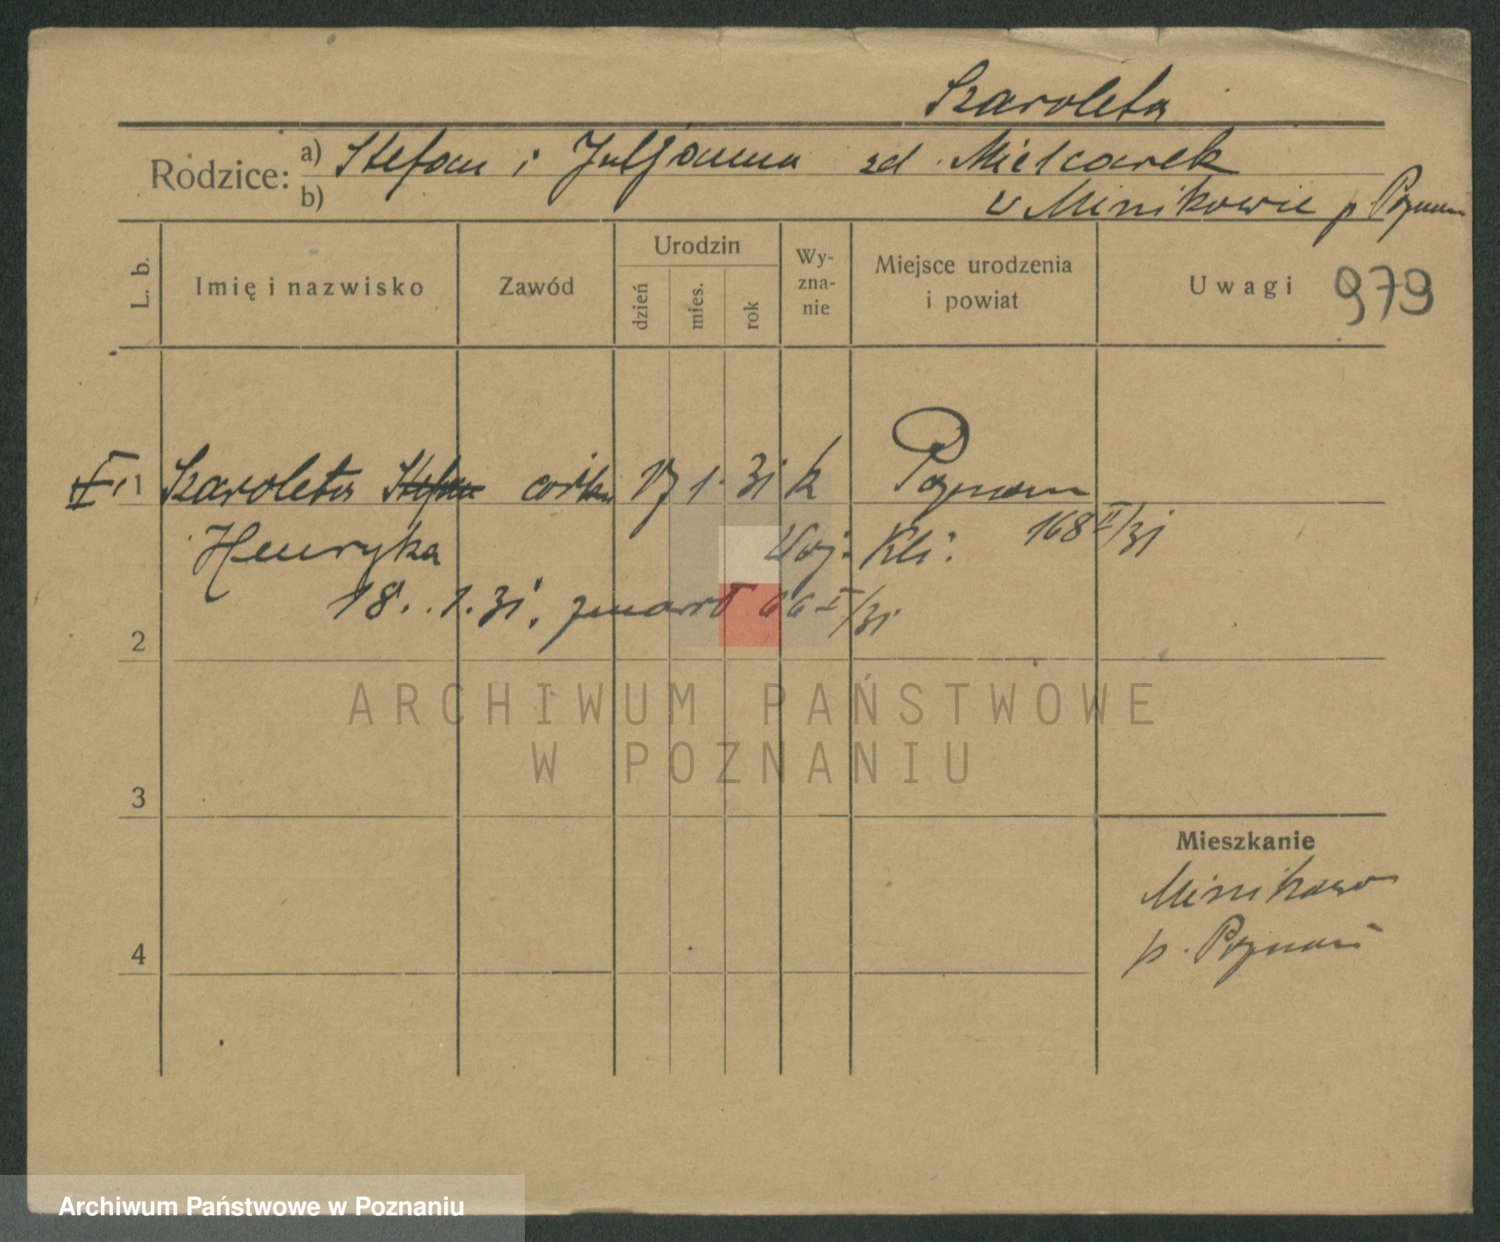 Szaroleta
Rodzice: a) Stefan i Juljanna zd. Mielcarek
b) w Minikowie p. Poznań
L. b. Imię i nazwisko Zawód Urodzin dzień mies. rok Wy-zna-nie Miejsce urodzenia i powiat Uwagi 979
1 Szaroleta Stefan córka 17 1. 31 k Poznań
Henryka Woj. Kli. 168 II/31
18. 1. 31. zmarł 66 I/31
2
ARCHIWUM PAŃSTWOWE
W POZNANIU
3
Mieszkanie
Minikowo
4
p. Poznań
Archiwum Państwowe w Poznaniu